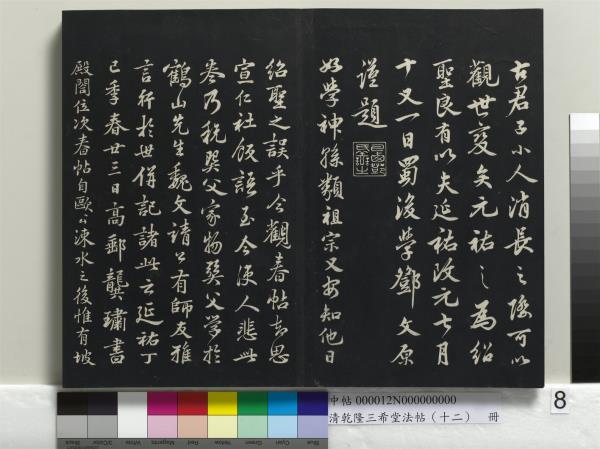 古君子小人消長之際可以
觀世變矣元祐之為紹
聖良有以夫延祐改元七月
十又一日蜀後學鄧文原
謹題
好學神孫類祖宗又安知他日
紹聖之誤乎今觀春帖志思
宣仁社飯語至今使人悲此
卷乃秔 父家物 父學於
鶴山先生魏文靖公有師友雅
言行於世併記諸此云延祐丁
巳季春廿三日高郵龔璛書
殿閣位次春帖自歐公涑水之後惟有坡
中帖 000012N000000000
清乾隆三希堂法帖（十二） 冊
8
Blue
Cyan
Green
Yellow
Red
Magenta
White
3/Color
Black